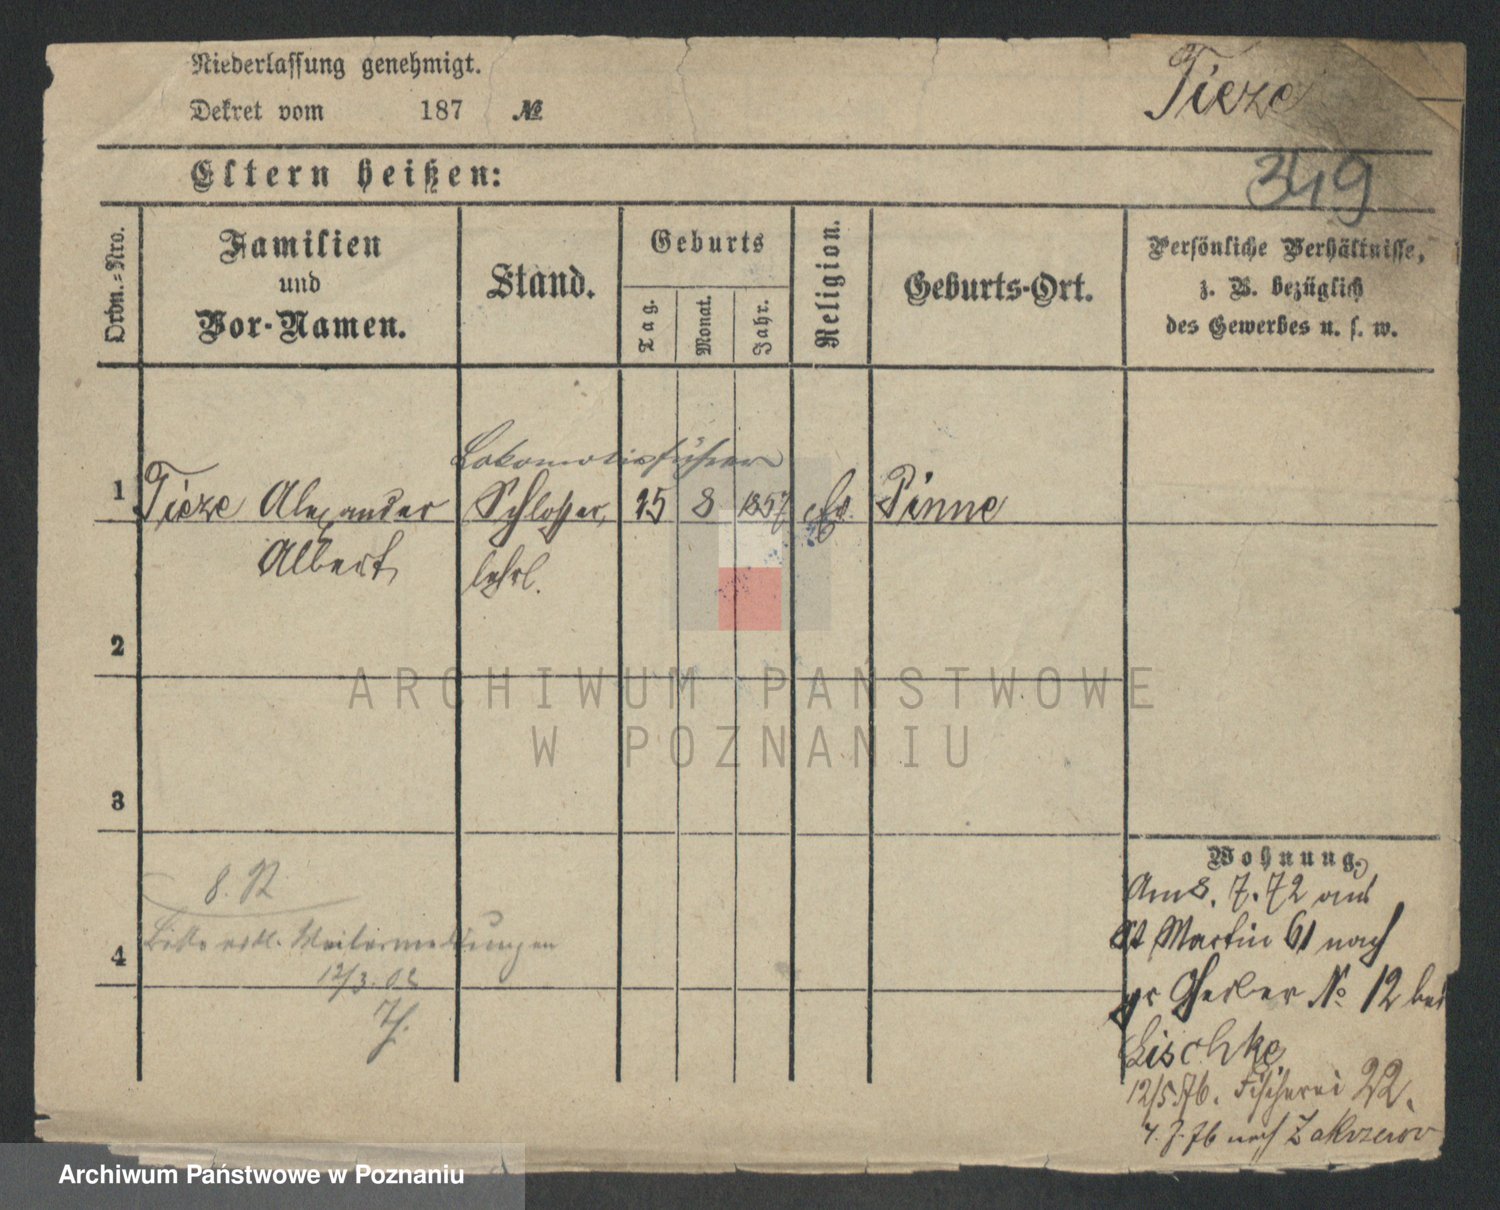 Niederlassung genehmigt.
Dekret vom 187 №
Tieze
349
Eltern heißen:
Ordn.-Nro.
Familien
und
Vor-Namen.
Stand.
Geburts
Tag.
Monat.
Jahr.
Religion.
Geburts-Ort.
Persönliche Verhältnisse,
z. B. bezüglich
des Gewerbes u. s. w.
Lokomotivführer
1 Tieze Alexander Schlosser, 25 8 1857 Ev. Pinne
Albert lehrl.
2
ARCHIWUM PAŃSTWOWE
W POZNANIU
3
Wohnung.
8. R
Am 8. 7. 72 aus
St Martin 61 nach
4 Bitte Weitermeldungen
12/3. 02
gr Gerber No 12 bei
Lischke
12/5.76. Fischerei 22.
4. 7. 76 nach Zakrzewo
Archiwum Państwowe w Poznaniu